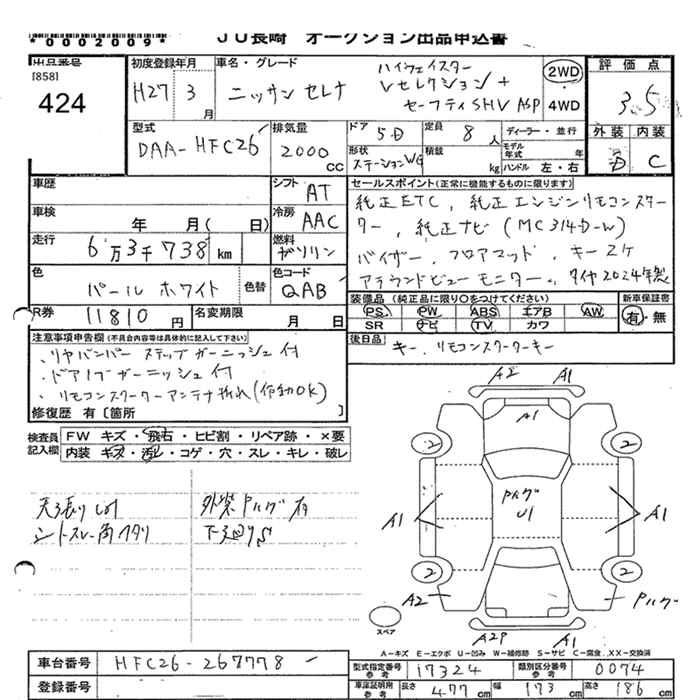 *0002009*
JU長崎 オークション出品申込書
出品番号
[858]
424
初度登録年月
H27 3 月
車名・グレード
ニッサン セレナ
ハイウェイスター
Vセレクション+
セーフティ SHV ASP
2WD
4WD
評価点
3.5
外装 内装
D C
型式
DAA-HFC26
排気量
2000 CC
ドア 5D
定員 8 人
形状 ステーションWG
積載 kg
ディーラー・並行
モデル年式 年
ハンドル 左・右
車歴
シフト AT
車検 年 月( 日)
冷房 AAC
走行 6万3千738 km
燃料 ガソリン
色 パール ホワイト 色替
色コード QAB
R券 11810 円
名変期限 月 日
セールスポイント(正常に機能するものに限ります)
純正ETC, 純正エンジンリモコンスター
ター, 純正ナビ(MC314D-W)
バイザー, フロアマット, キー2ケ
アラウンドビューモニター, タイヤ2024年製
装備品(純正品に限り○をつけてください)
PS PW ABS エアB AW
SR ナビ TV カワ
新車保証書
有・無
後日品 キー, リモコンスターターキー
注意事項申告欄(不具合内容等は具体的に記入して下さい)
・リヤバンパー ステップガーニッシュ付
・ドアノブガーニッシュ付
・リモコンスターターアンテナ折れ(作動OK)
修復歴 有〔箇所 〕
検査員記入欄
FW キズ・飛石・ヒビ割・リペア跡・×要
内装 キズ・汚れ・コゲ・穴・スレ・キレ・破レ
天張りシミ
シートスレ
外装Pハゲ有
下廻りS
A2 A1
A1
2 2
Pハゲ
U1
A1 A1
2 2
A2 Pハゲ
スペア
A2P A1
A-キズ E-エクボ U-凹み W-補修跡 S-サビ C-腐食 XX-交換済
車台番号 HFC26-267778
登録番号
型式指定番号 参考 17324
類別区分番号 参考 0074
車庫証明用 参考 長さ 477 cm 幅 173 cm 高さ 186 cm